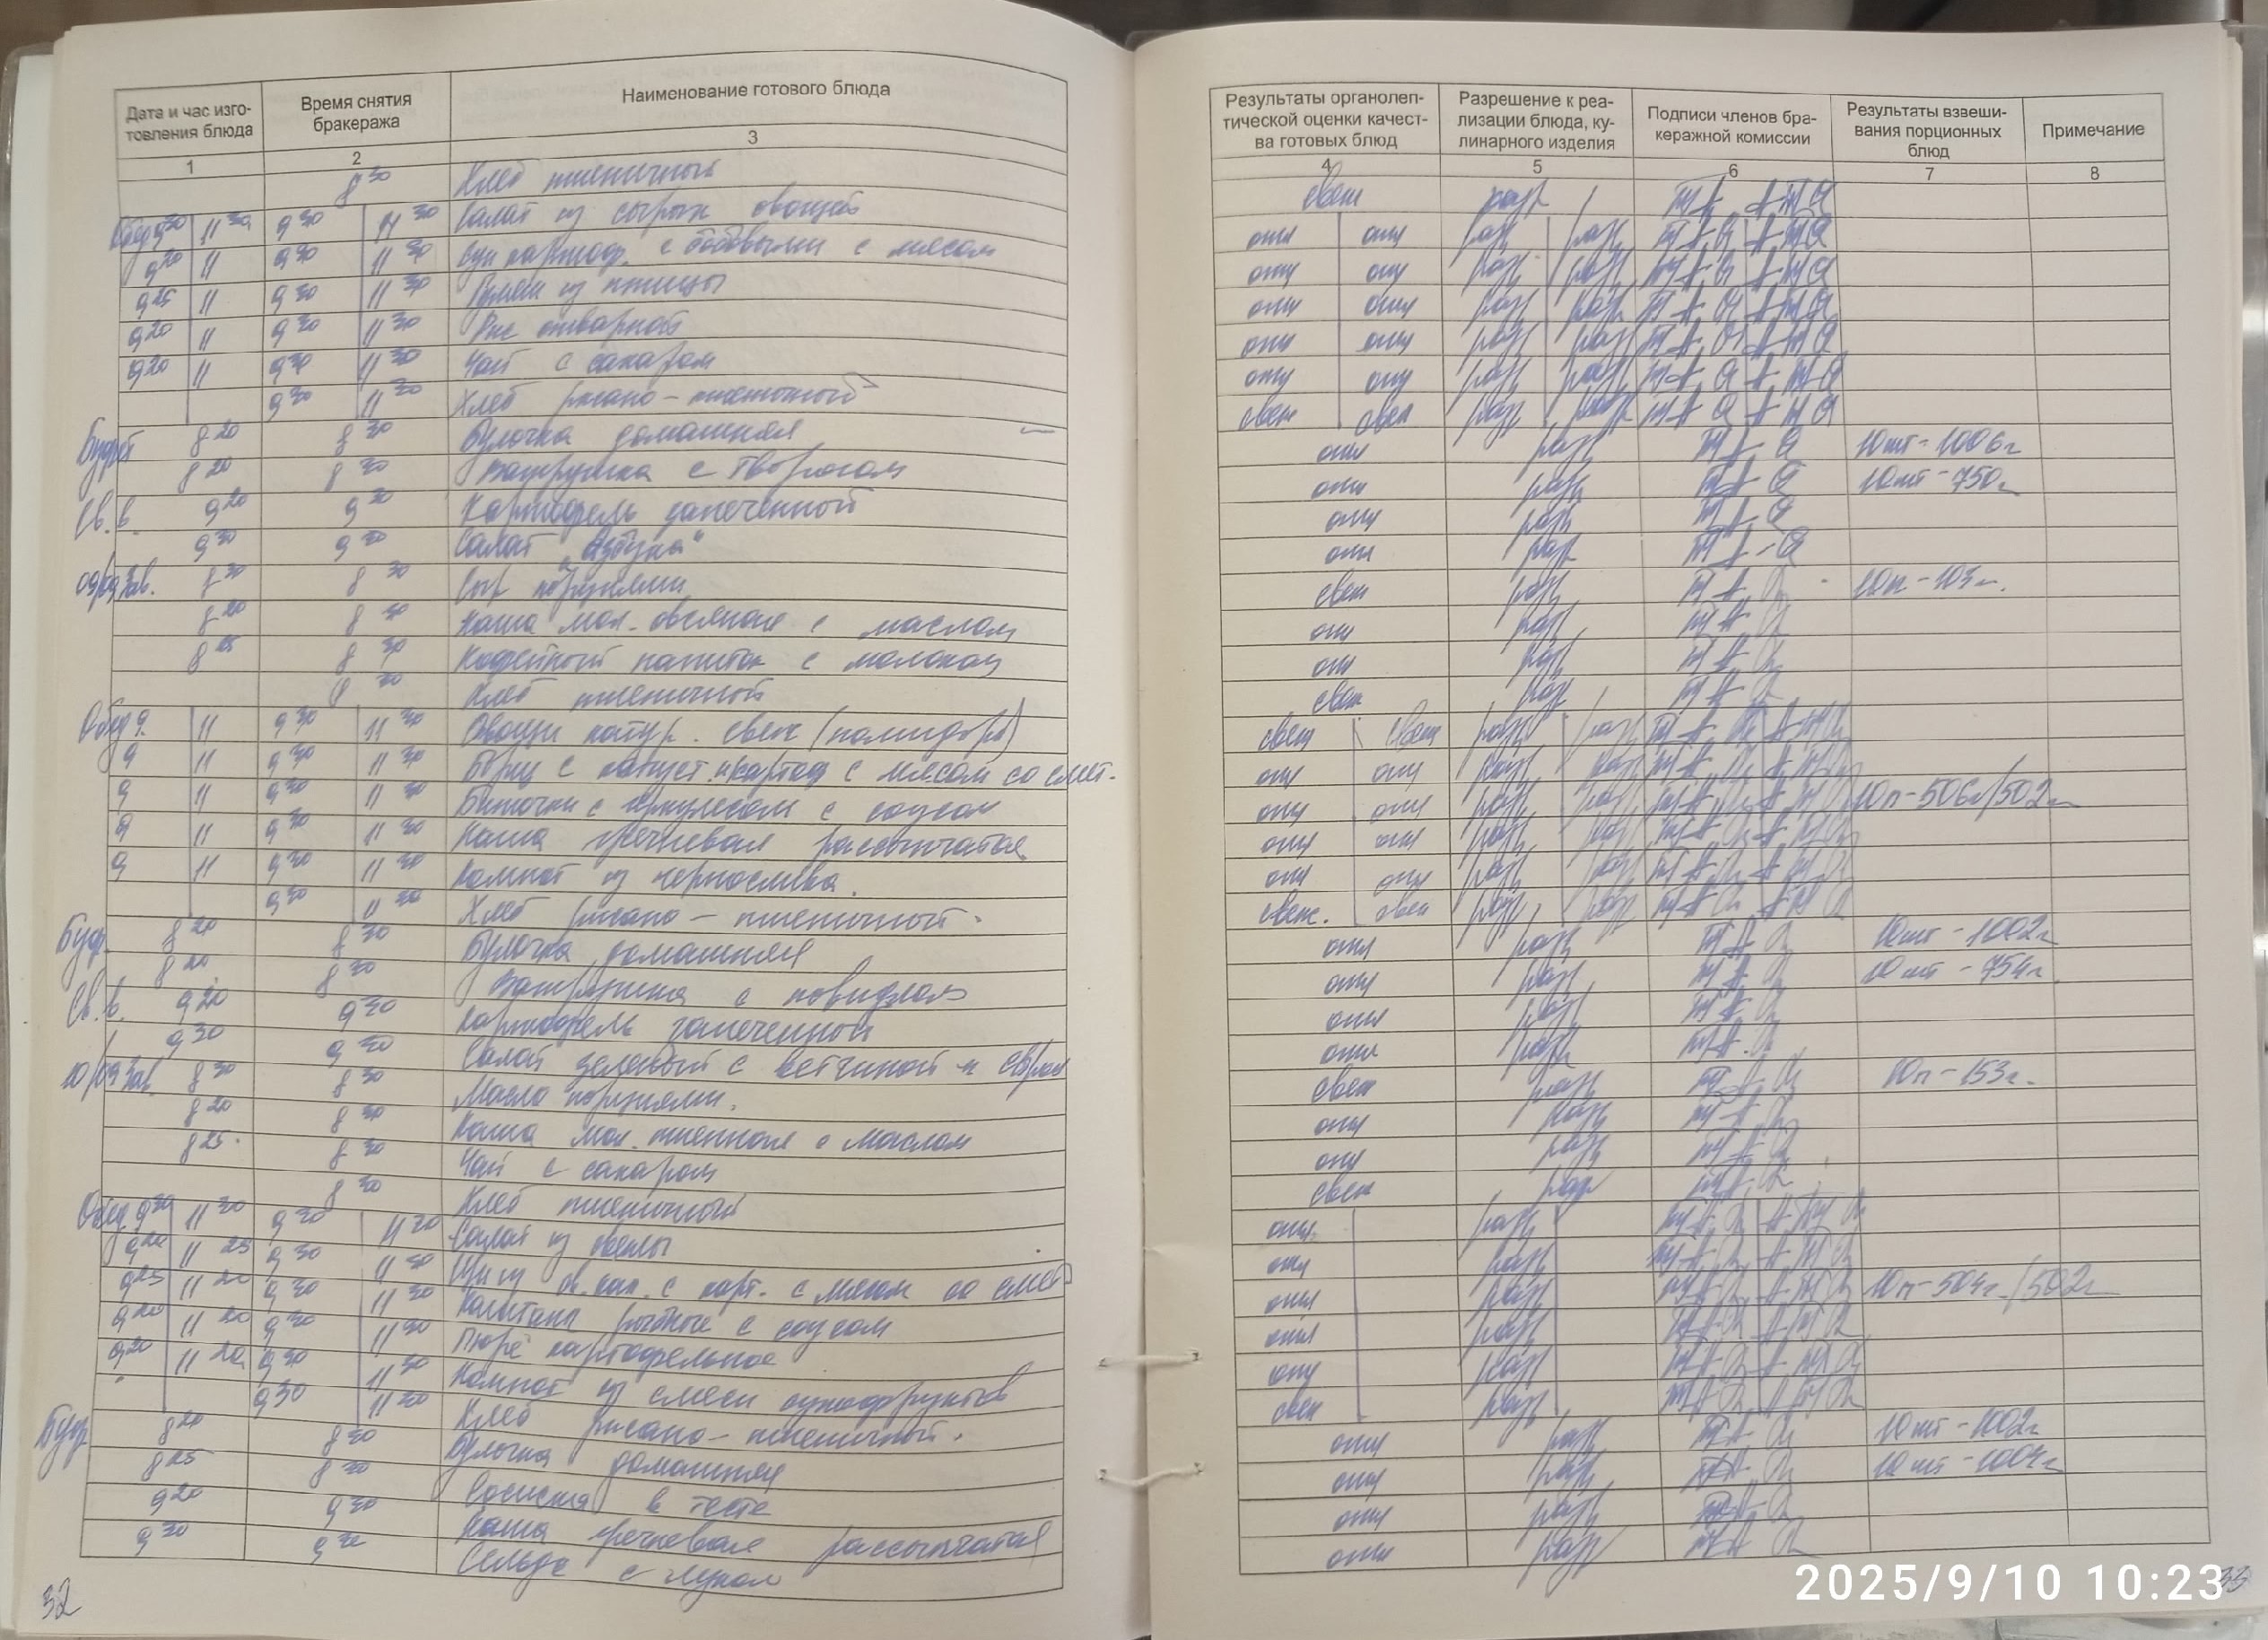 Дата и час изго-
товления блюда
Время снятия
бракеража
Наименование готового блюда
1
2
3
8 30 Хлеб пшеничный
Обед 9 30 11 30 9 30 11 30 Салат из сырых овощей
9 20 11 9 30 11 30 Суп картоф. с бобовыми с мясом
9 25 11 9 30 11 30 Гуляш из птицы
9 20 11 9 30 11 30 Рис отварной
9 20 11 9 30 11 30 Чай с сахаром
9 30 11 30 Хлеб ржано-пшеничный
Буфет 8 20 8 30 Булочка домашняя
8 20 8 30 Ватрушка с творогом
Св. в. 9 20 9 30 Картофель запеченный
9 30 9 30 Салат "Азбука"
09/09 Зав. 8 30 8 30 Сыр порциями
8 20 8 30 Каша мол. овсяная с маслом
8 25 8 30 Кофейный напиток с молоком
8 30 Хлеб пшеничный
Обед 9 11 9 30 11 30 Овощи натур. свеж (помидоры)
9 11 9 30 11 30 Борщ с капуст. и картоф с мясом со смет.
9 11 9 30 11 30 Биточки с геркулесом с соусом
9 11 9 30 11 30 Каша гречневая рассыпчатая
9 11 9 30 11 30 Компот из чернослива.
9 30 11 30 Хлеб ржано-пшеничный.
Буф. 8 20 8 30 Булочка домашняя
8 20 8 30 Ватрушка с повидлом
Св. в. 9 20 9 30 Картофель запеченный
9 30 9 30 Салат зеленый с ветчиной и сыром
10/09 Зав. 8 30 8 30 Масло порциями.
8 20 8 30 Каша мол. пшенная с маслом
8 25 8 30 Чай с сахаром
8 30 Хлеб пшеничный
Обед 9 30 11 30 9 30 11 30 Салат из свеклы
9 20 11 25 9 30 11 30 Щи из св. кап. с карт. с мясом со смет
9 25 11 20 9 30 11 30 рыбные с соусом
9 20 11 20 9 30 11 30 Пюре картофельное
9 20 11 20 9 30 11 30 Компот из смеси сухофруктов
9 30 11 30 Хлеб ржано-пшеничный.
Буф 8 20 8 30 Булочка домашняя
8 25 8 30 Сосиска в тесте
9 20 9 30 Каша гречневая рассыпчатая
9 30 9 30 Сельдь с луком
32
Результаты органолеп-
тической оценки качест-
ва готовых блюд
Разрешение к реа-
лизации блюда, ку-
линарного изделия
Подписи членов бра-
керажной комиссии
Результаты взвеши-
вания порционных
блюд
Примечание
4
5
6
7
8
свеж разр
отл отл разр разр
отл отл разр разр
отл отл разр разр
отл отл разр разр
отл отл разр разр
свеж свеж разр разр
отл разр 10шт-1006г
отл разр 10шт-750г
отл разр
отл разр
свеж разр 10п-103г.
отл разр
отл разр
свеж разр
свеж свеж разр разр
отл отл разр разр
отл отл разр разр 10п-506г/502г
отл отл разр разр
отл отл разр разр
свеж. свеж разр разр
отл разр 10шт-1002г
отл разр 10шт-754г
отл разр
отл разр
свеж разр 10п-153г.
отл разр
отл разр
свеж разр
отл. разр
отл разр
отл разр 10п-504г./502г
отл разр
отл разр
свеж разр
отл разр 10шт-1002г
отл разр 10шт-1004г
отл разр
отл разр
2025/9/10 10:23
33